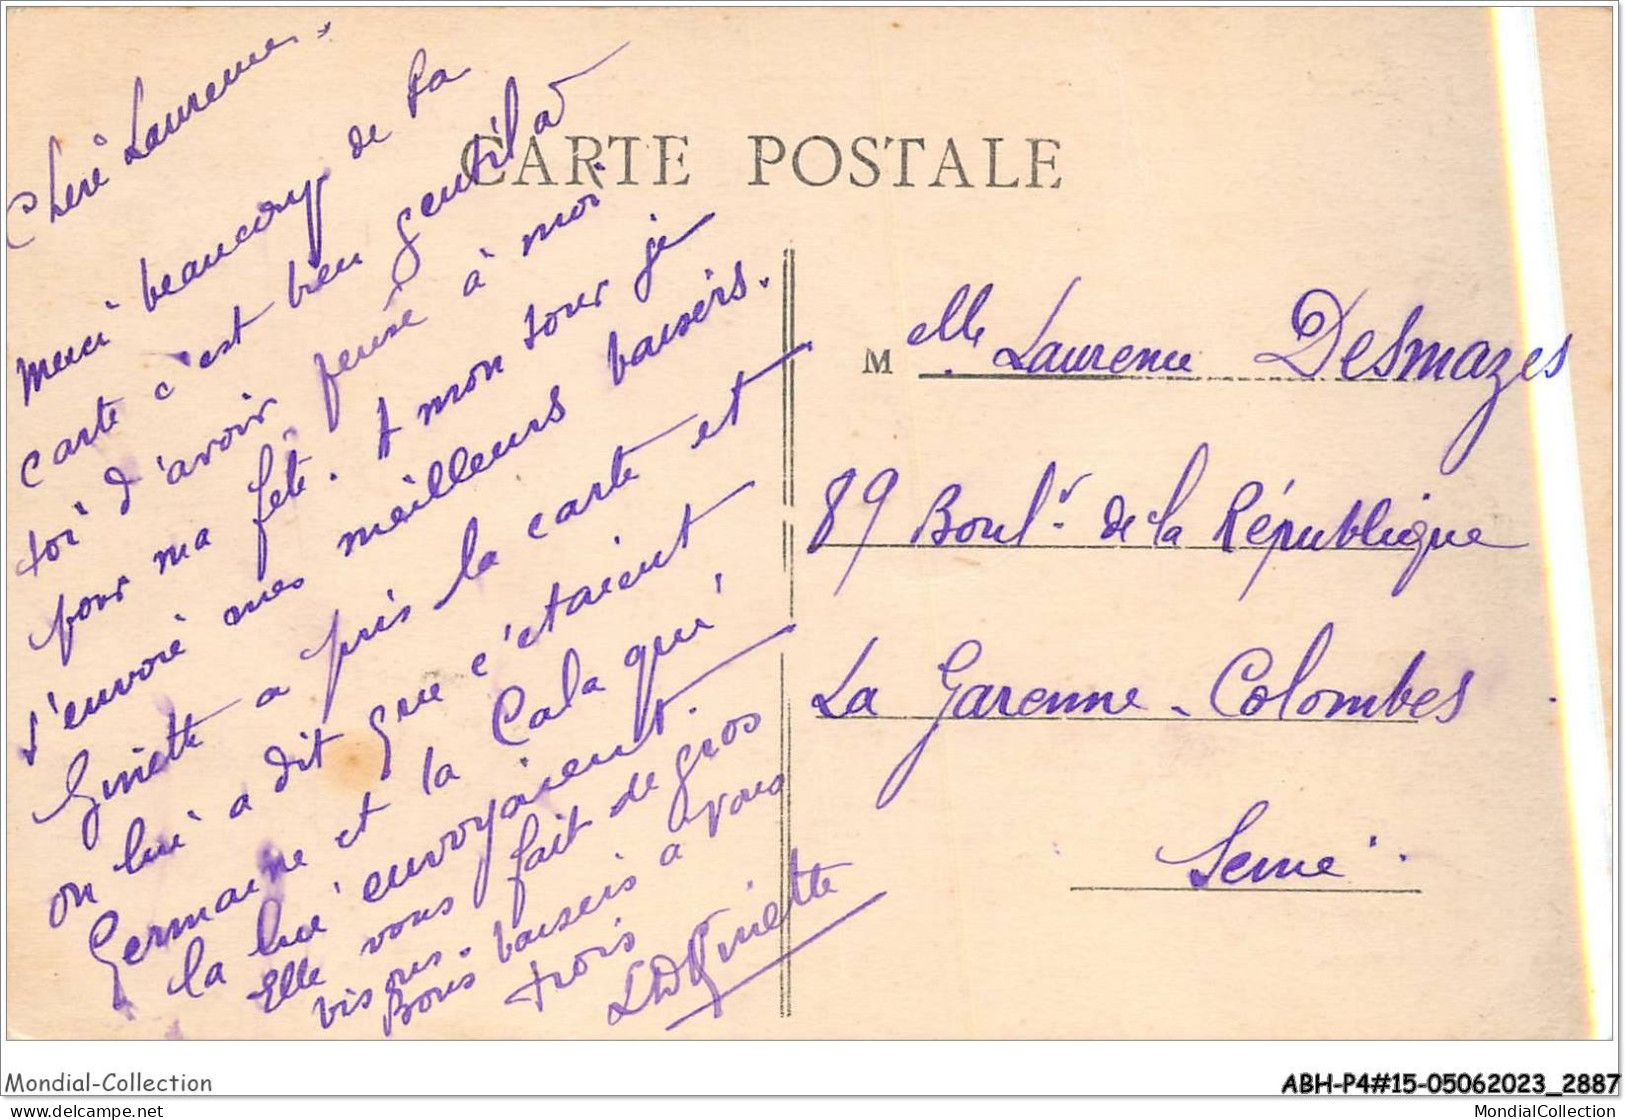 CARTE POSTALE
Chère Laurence.
Merci beaucoup de ta
carte c'est bien gentil à
toi d'avoir pensé à moi
pour ma fête. A mon tour je
t'envoie mes meilleurs baisers.
Ginette a pris la carte et
on lui a dit que c'étaient
Germaine et la Cala qui
la lui envoyaient.
Elle vous fait de gros
bisous.
Bons baisers a vous
trois
Ginette
M elle Laurence Desmazes
89 Boul.v de la République
La Garenne-Colombes
Seine
Mondial-Collection
ABH-P4#15-05062023_2887
www.delcampe.net
MondialCollection